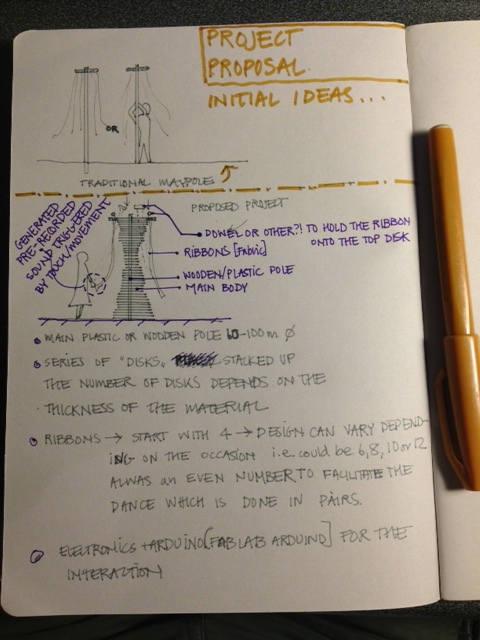 PROJECT
PROPOSAL
INITIAL IDEAS...
OR
TRADITIONAL MAYPOLE
PROPOSED PROJECT
GENERATED
PRE-RECORDED
SOUND TRIGGERED
BY TOUCH/MOVEMENT
DOWEL OR OTHER?! TO HOLD THE RIBBON
ONTO THE TOP DISK
RIBBONS [FABRIC]
WOODEN/PLASTIC POLE
MAIN BODY
MAIN PLASTIC OR WOODEN POLE -100m Ø
SERIES OF "DISKS" STACKED UP
THE NUMBER OF DISKS DEPENDS ON THE
THICKNESS OF THE MATERIAL
RIBBONS → START WITH 4 → DESIGN CAN VARY DEPEND-
ING ON THE OCCASION i.e. could be 6, 8, 10 or 12
ALWAS AN EVEN NUMBER TO THE
DANCE WHICH IS DONE IN PAIRS.
ELECTRONICS + ARDUINO [FABLAB ARDUINO] FOR THE
INTERACTION